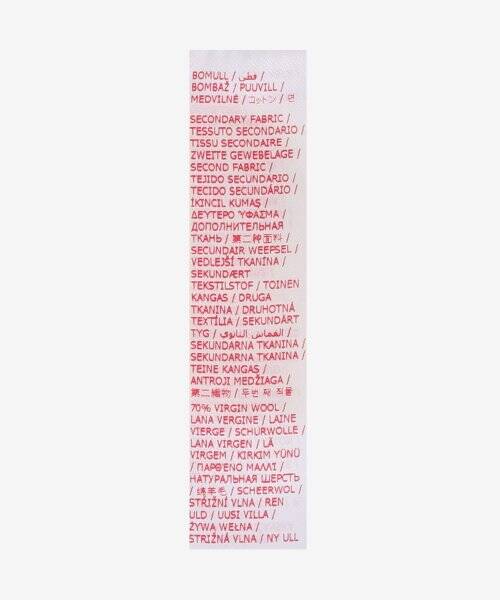 BOMULL / قطن /
BOMBAŽ / PUUVILL /
MEDVILNĖ / コットン / 면
SECONDARY FABRIC /
TESSUTO SECONDARIO /
TISSU SECONDAIRE /
ZWEITE GEWEBELAGE /
SECOND FABRIC /
TEJIDO SECUNDARIO /
TECIDO SECUNDÁRIO /
İKİNCİL KUMAŞ /
ΔΕΥΤΕΡΟ ΎΦΑΣΜΑ /
ДОПОЛНИТЕЛЬНАЯ
ТКАНЬ / 第二种面料 /
SECUNDAIR WEEFSEL /
VEDLEJŠÍ TKANINA /
SEKUNDÆRT
TEKSTILSTOF / TOINEN
KANGAS / DRUGA
TKANINA / DRUHOTNÁ
TEXTÍLIA / SEKUNDÄRT
TYG / القماش الثانوي /
SEKUNDARNA TKANINA /
SEKUNDARNA TKANINA /
TEINE KANGAS /
ANTROJI MEDŽIAGA /
第二編物 / 두번 째 직물
70% VIRGIN WOOL /
LANA VERGINE / LAINE
VIERGE / SCHURWOLLE /
LANA VIRGEN / LÃ
VIRGEM / KIRKIM YÜNÜ
/ ΠΑΡΘΈΝΟ ΜΑΛΛΊ /
НАТУРАЛЬНАЯ ШЕРСТЬ
/ 绵羊毛 / SCHEERWOL /
STŘIŽNÍ VLNA / REN
ULD / UUSI VILLA /
ŻYWA WEŁNA /
STRIŽNÁ VLNA / NY ULL